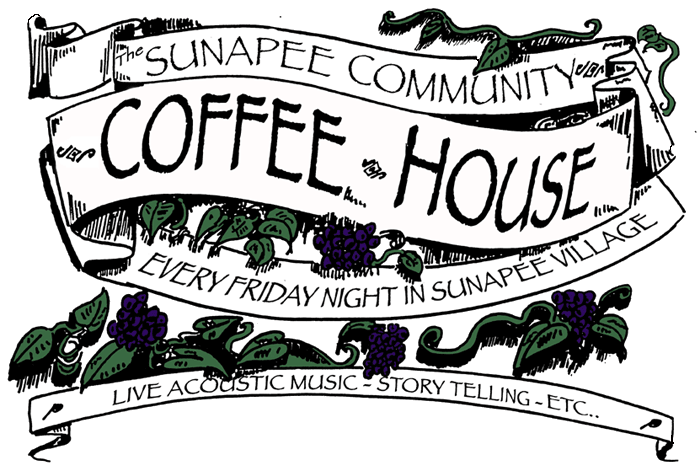 The SUNAPEE COMMUNITY
COFFEE HOUSE
EVERY FRIDAY NIGHT IN SUNAPEE VILLAGE
LIVE ACOUSTIC MUSIC - STORY TELLING - ETC..